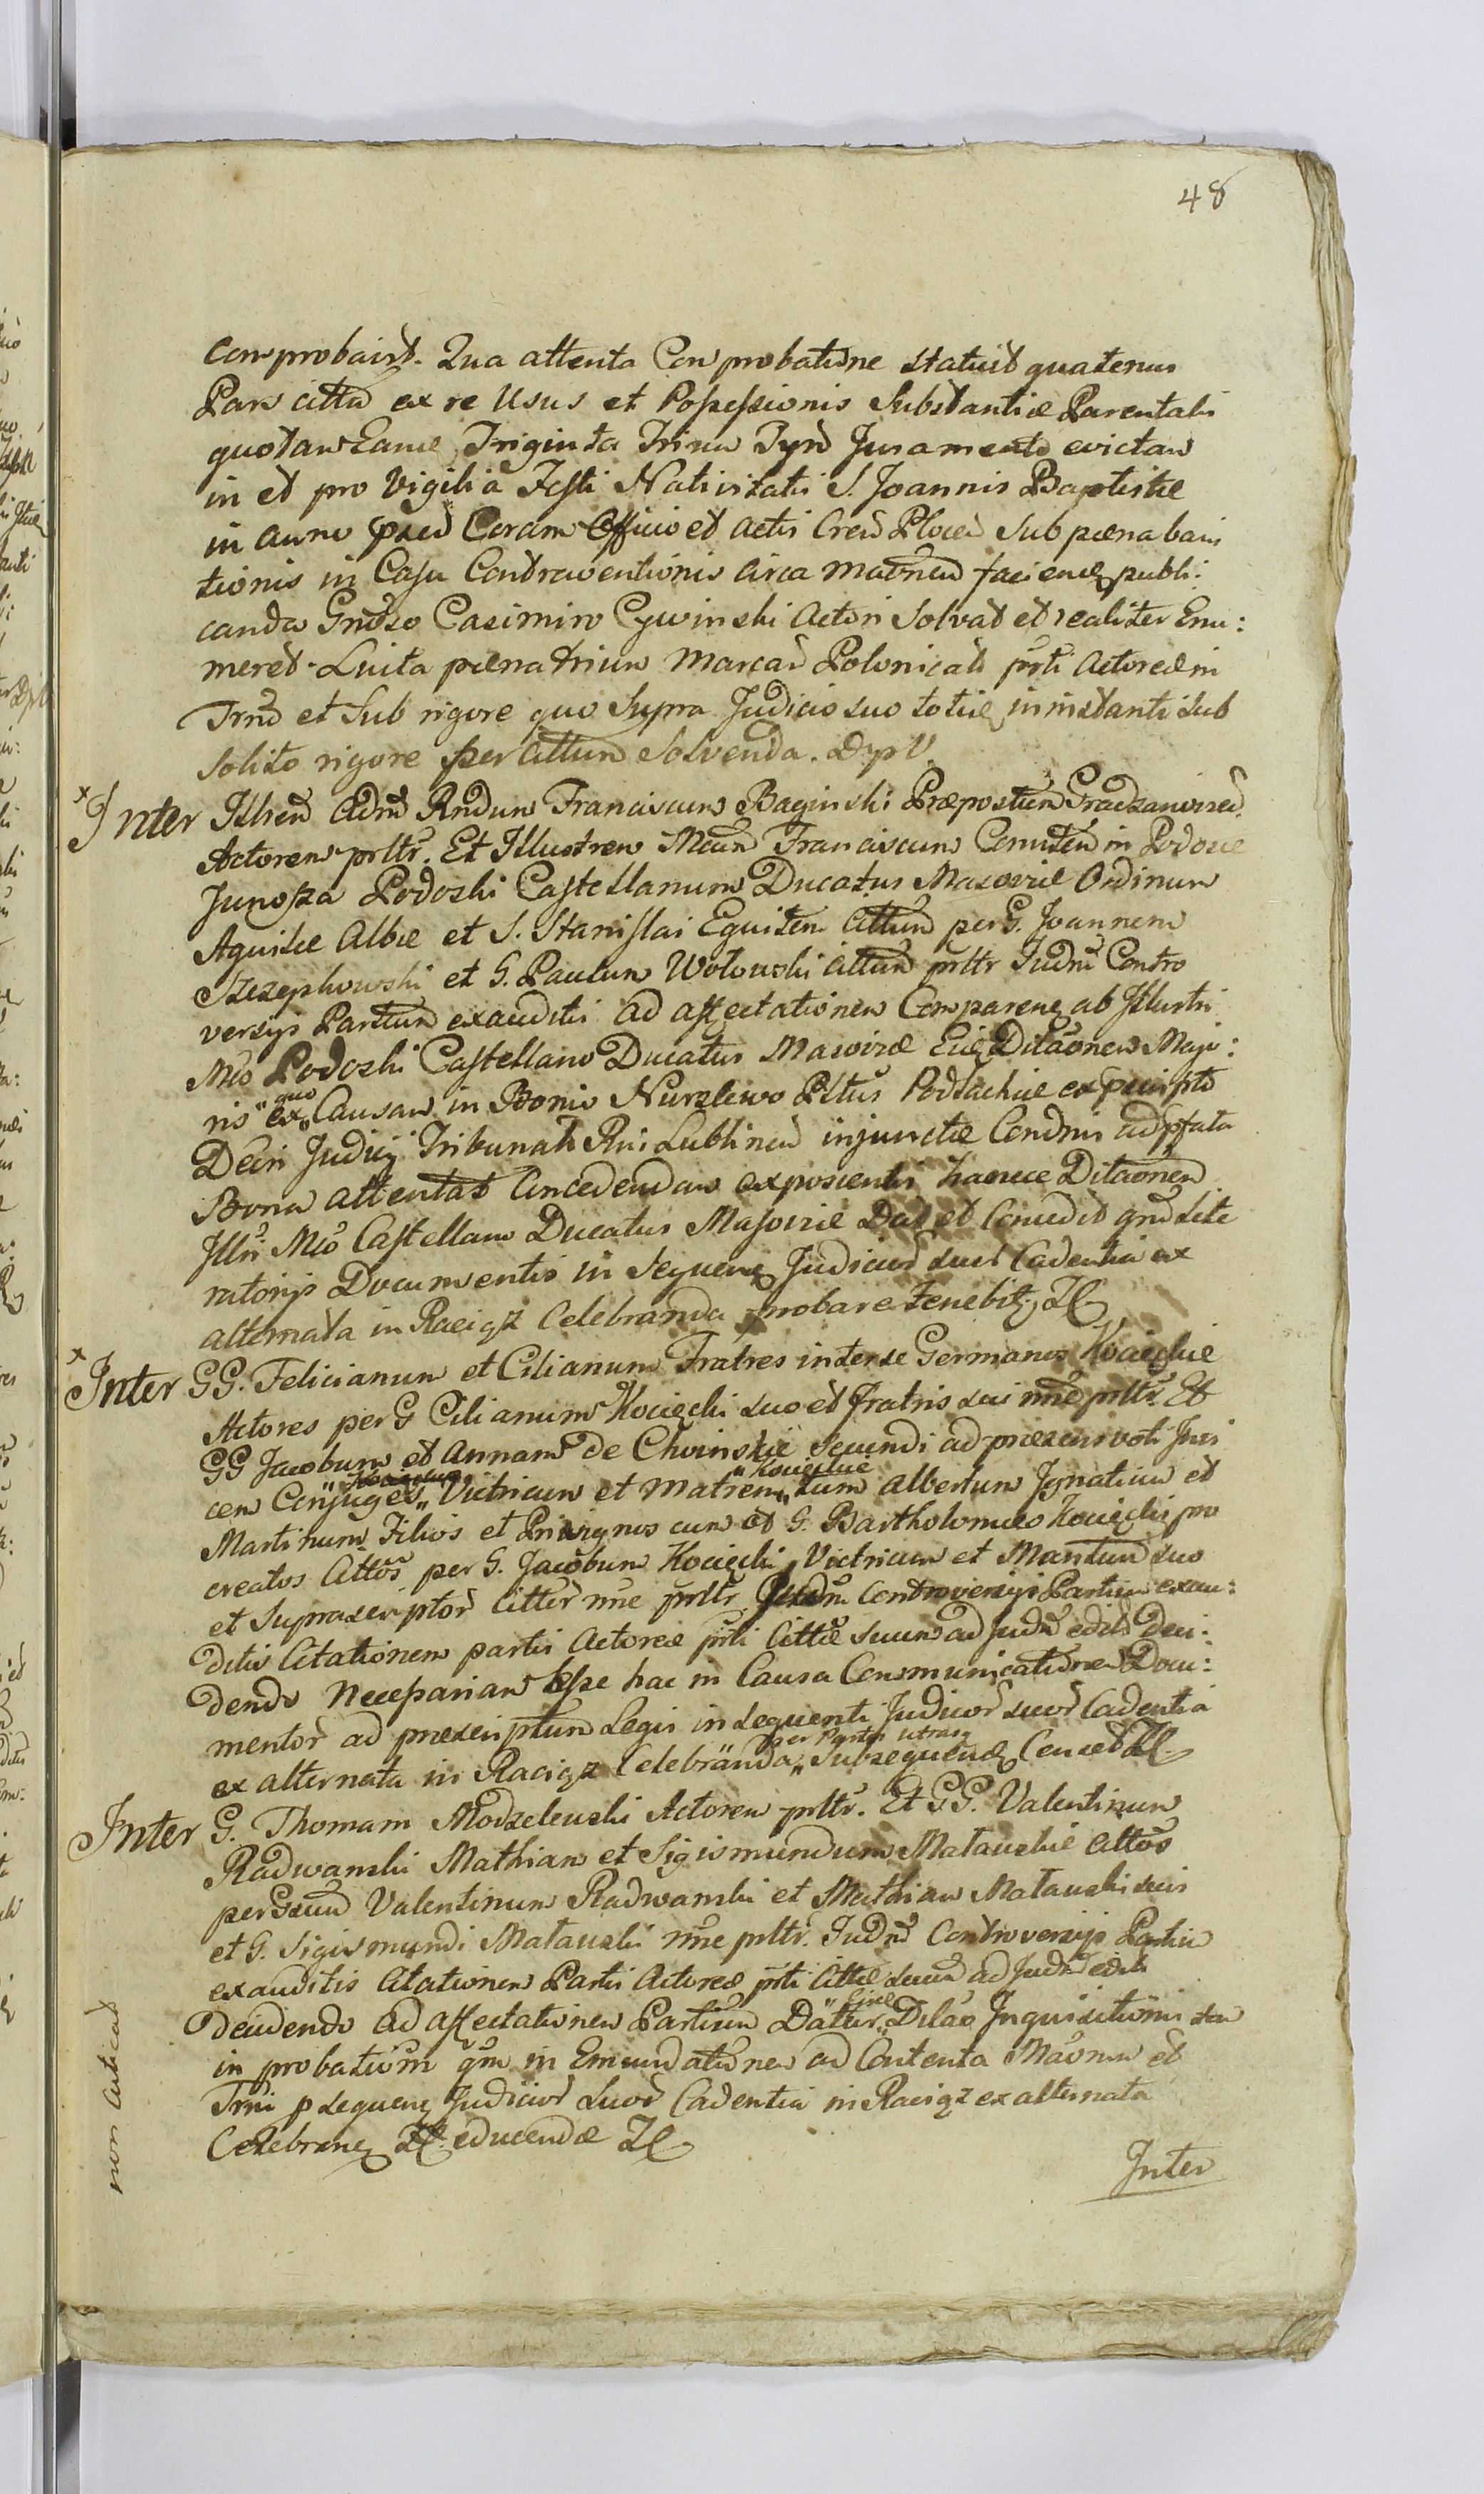 48
comprobavit. Qua attenta Comprobatione statuit quatenus
Pars citta ex re Usus et Possessionis Substantiæ Parentalis
quotam Summæ Triginta Trium Tynf Juramento evictam
in et pro Vigilia Festi Nativitatis S. Joannis Baptistæ
in anno præd Coram Officio et Actis Cren Plocen Sub pæna bani
tionis in Casu Contraventionis circa matnem faciend publi:
canda Gnoso Casimiro Cywinski Actori Solvat et realiter Enu:
meret. Luita pæna trium Marcar Polonical prti Actoreæ in
Trno et Sub rigore quo Supra Judicio suo totie in instanti sub
Solito rigore per Cittum Solvenda. DyPV.
Inter Illrem Adm Rndum Franciscum Baginski Præpostum Gradzanovicen.
Actorem prltr. Et Illustrem Mcum Franciscum Comitem in Podosie
Junosza Podoski Castellanum Ducatus Masoviæ Ordinum
Aquilæ Albæ et S. Stanislai Equitem Cittum per G. Joannem
Szczepkowski et G. Paulum Wołowski Cittum prltr Iudm Contro
versys Partium exauditis ad affectationem Comparend ab Illustri
Mco Podoski Castellano Ducatus Masoviæ Eid Dilaonem Majo:
ris "quo" ex Causam in Bonis Nurzlewo Pltus Podlachiæ ex præscripto
Decri Judicij Tribunalis Rni Lublinen injunctæ Condnis ad pfata
Bona attentat Concedendam exposcentis hancce Dilaonem
Illri Mco Castellano Ducatus Masoviæ Dat et Concedit qm Lite
ratorijs Documentis in Sequend Judicior suor Cadentia ex
alternata in Raciąż Celebranda probare tenebit. Zc
Inter GG. Felicianum et Cilianum Fratres inter se Germanos Kocięckie
Actores per G Cilianum Kocięcki suo et Fratris sui nne prltr. Et
GG Jacobum et Annam de Choinskie Secundi ad præsens voti Inri
cem Conjuges "Kocięckie" Vitricum et Matrem "Kocięckie" tum Albertum Ignatium et
Martinum Filios et Privignos cum et G. Bartholomæo Kocięcki pro
creatos Cittos per G. Jacobum Kocięcki Vitricum et Maritum suo
et Suprascriptor Cittor nne prltr. Judm Controversijs Partium exau:
ditis Citationem partis Actoreæ prti Cittæ suum ad Judm edit Deci:
dendo Necessariam Esse hac in Causa Communicationem Docu:
mentor ad præscriptum Legis in sequenti Judicior suor Cadentia
ex alternata in Raciąż Celebranda "per Partes utrasq" Subsequend Censet Zc.
Inter G. Thomam Modzelewski Actorem prltr. Et GG. Valentinum
Radwanski Mathiam et Sigismundum Matauskie Cittos
per Gsum Valentinum Radwanski et Mathiam Matauski suis
et G. Sigismundi Matauski nne prltr. Judm Controversijs Partium
exauditis Citationem Partis Actoreæ prti Cittæ suum ad Judm edit
decidendo ad affectationem Partium Datur Dilao Inquisitionis tam
in probatiom qm in Emundationem ad Contenta Maonem et
Trni p sequend Judicior Suor Cadentia in Raciąż ex alternata
Celebrand Zc. educendæ Zc
non Anticat
Inter